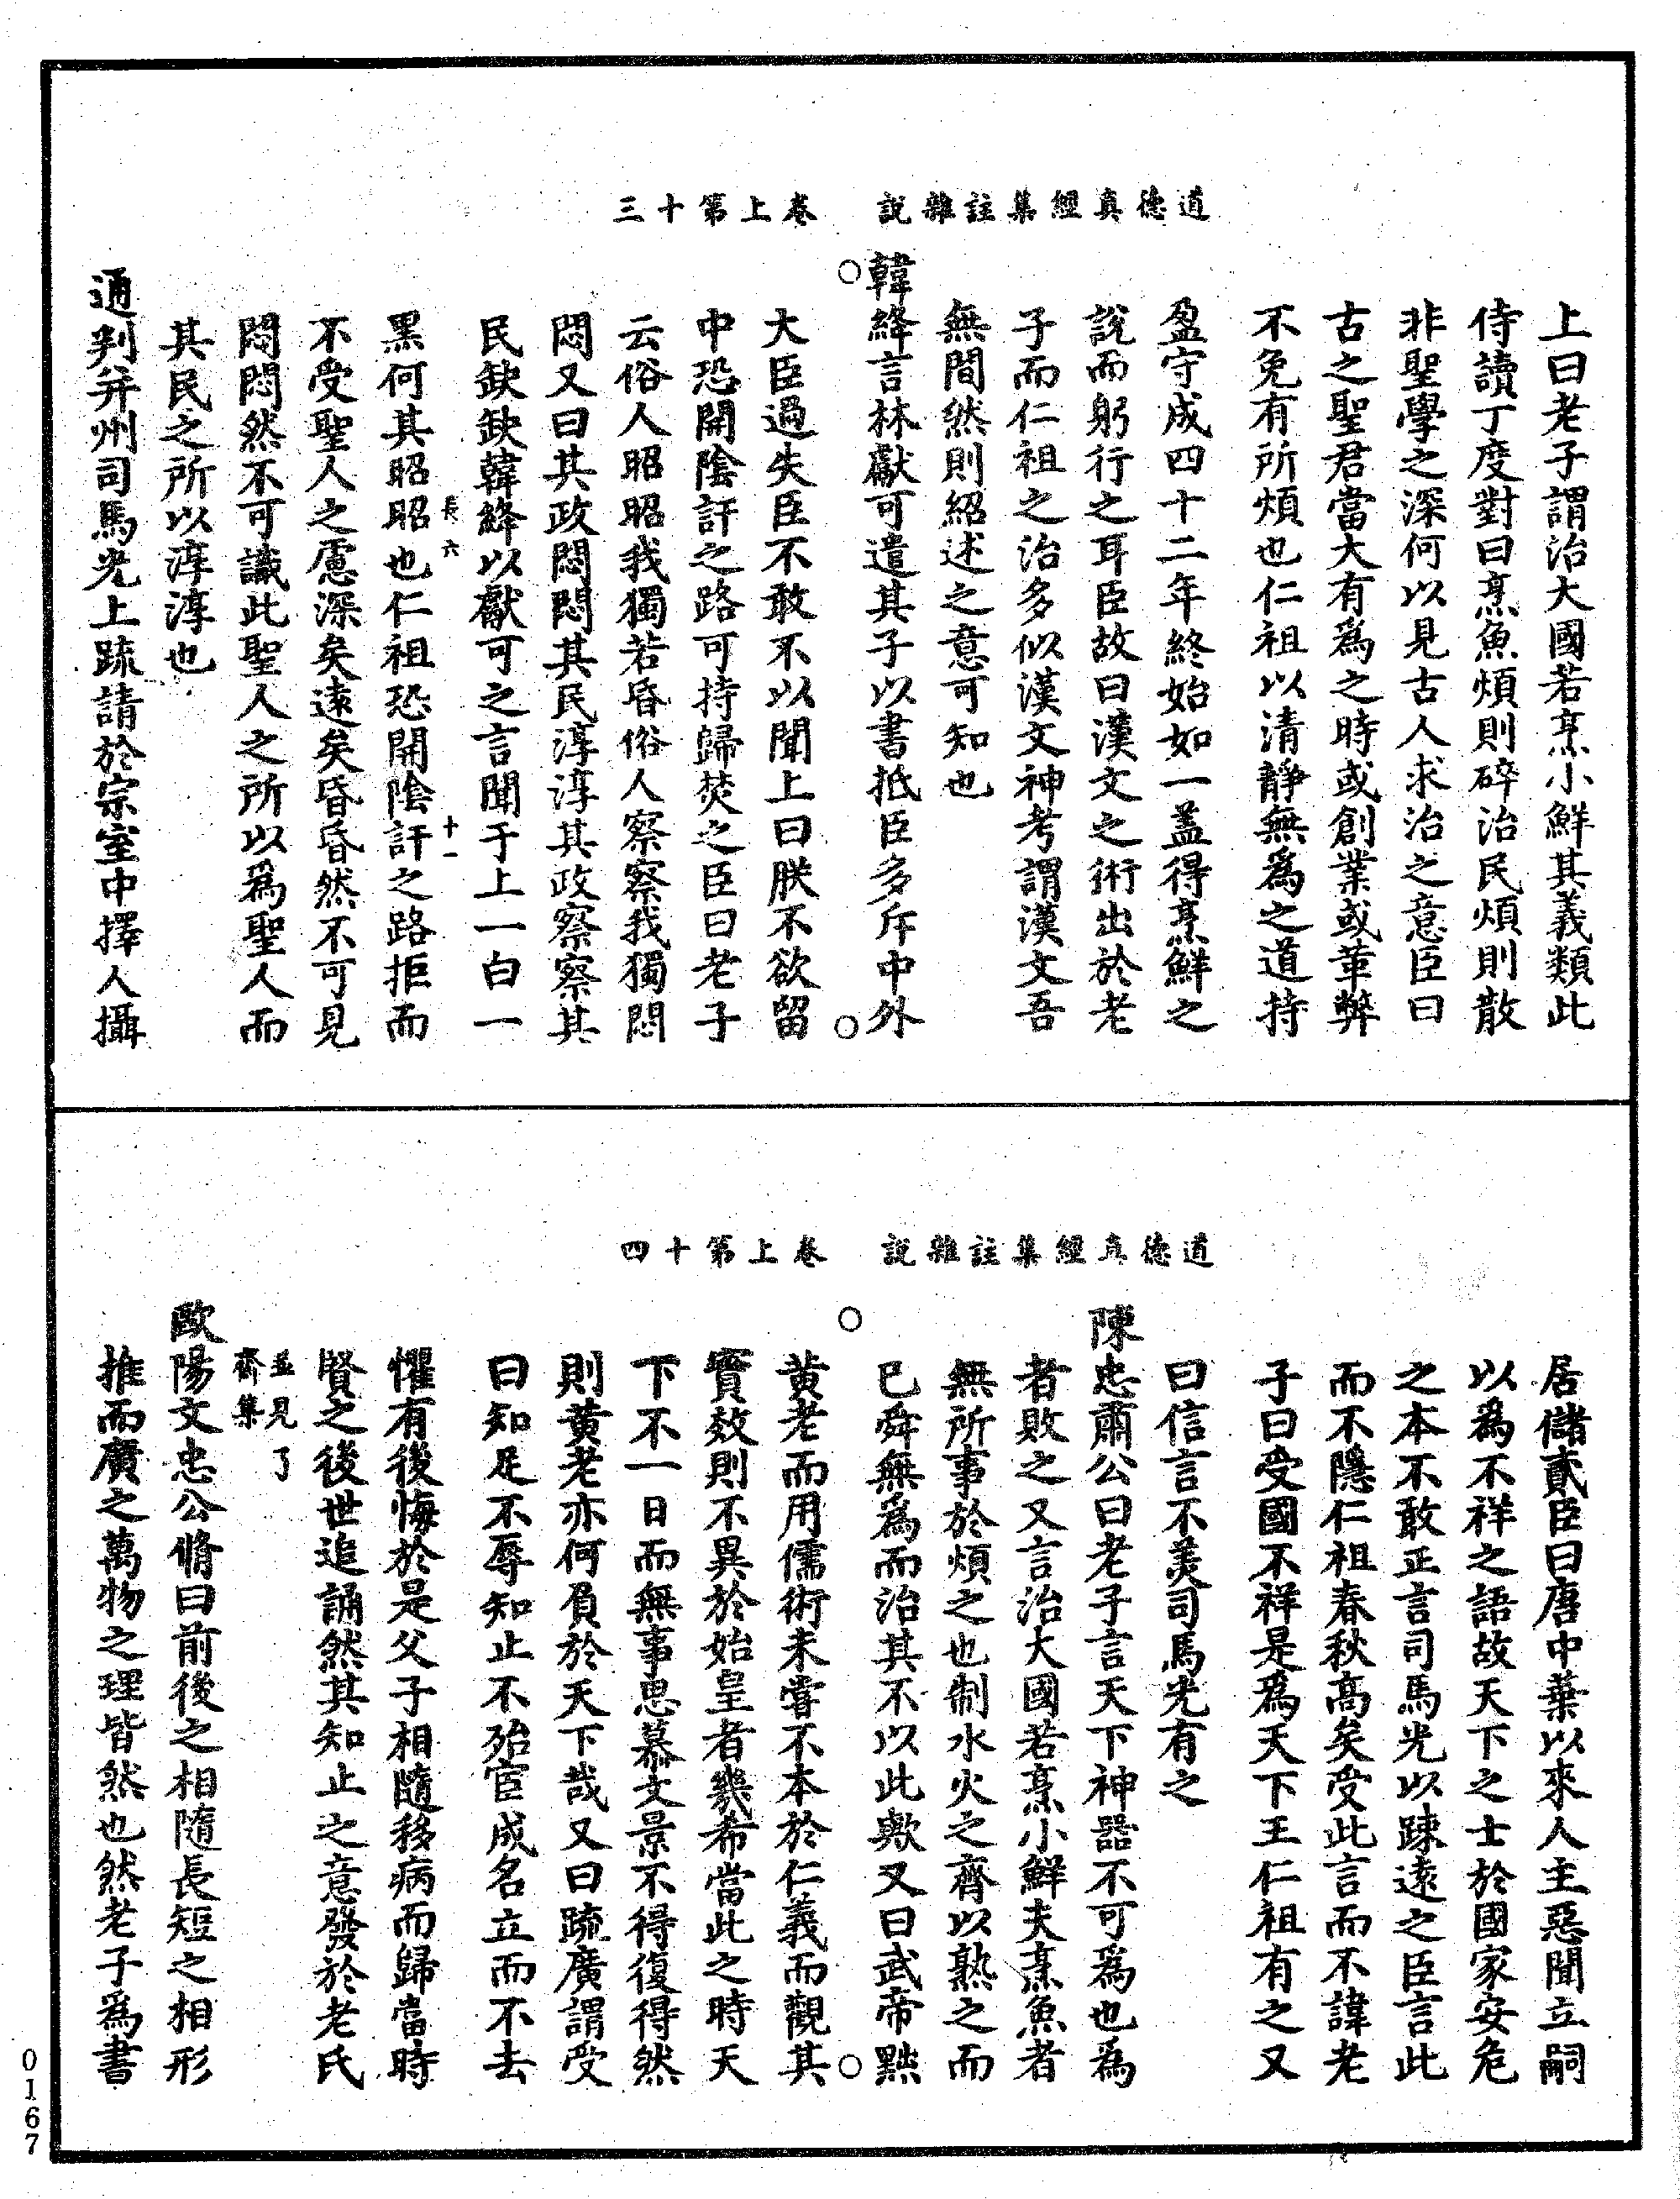 道德真經集註雜說　卷上第十三
上曰老子謂治大國若烹小鮮其義類此
侍讀丁度對曰烹魚煩則碎治民煩則散
非聖學之深何以見古人求治之意臣曰
古之聖君當大有爲之時或創業或革弊
不免有所煩也仁祖以清靜無爲之道持
盈守成四十二年終始如一蓋得烹鮮之
說而躬行之耳臣故曰漢文之術出於老
子而仁祖之治多似漢文神考謂漢文吾
無間然則紹述之意可知也
○韓絳言林獻可遣其子以書抵臣多斥中外○
大臣過失臣不敢不以聞上曰朕不欲留
中恐開陰訐之路可持歸焚之臣曰老子
云俗人昭昭我獨若昏俗人察察我獨悶
悶又曰其政悶悶其民淳淳其政察察其
民缺缺韓絳以獻可之言聞于上一白一
長六　十一
黑何其昭昭也仁祖恐開陰訐之路拒而
不受聖人之慮深矣遠矣昏昏然不可見
悶悶然不可識此聖人之所以爲聖人而
其民之所以淳淳也
通判并州司馬光上疏請於宗室中擇人攝
道德真經集註雜說　卷上第十四
居儲貳臣曰唐中葉以來人主惡聞立嗣
以爲不祥之語故天下之士於國家安危
之本不敢正言司馬光以踈遠之臣言此
而不隱仁祖春秋高矣受此言而不諱老
子曰受國不祥是爲天下王仁祖有之又
曰信言不美司馬光有之
陳忠肅公曰老子言天下神器不可爲也爲
者敗之又言治大國若烹小鮮夫烹魚者
無所事於煩之也制水火之齊以熟之而
已舜無爲而治其不以此歟又曰武帝黜
○○
黃老而用儒術未嘗不本於仁義而觀其
實效則不異於始皇者幾希當此之時天
下不一日而無事思慕文景不得復得然
則黃老亦何負於天下哉又曰疏廣謂受
曰知足不辱知止不殆宦成名立而不去
懼有後悔於是父子相隨移病而歸當時
賢之後世追誦然其知止之意發於老氏
並見了
齋集
歐陽文忠公脩曰前後之相隨長短之相形
推而廣之萬物之理皆然也然老子爲書
0167